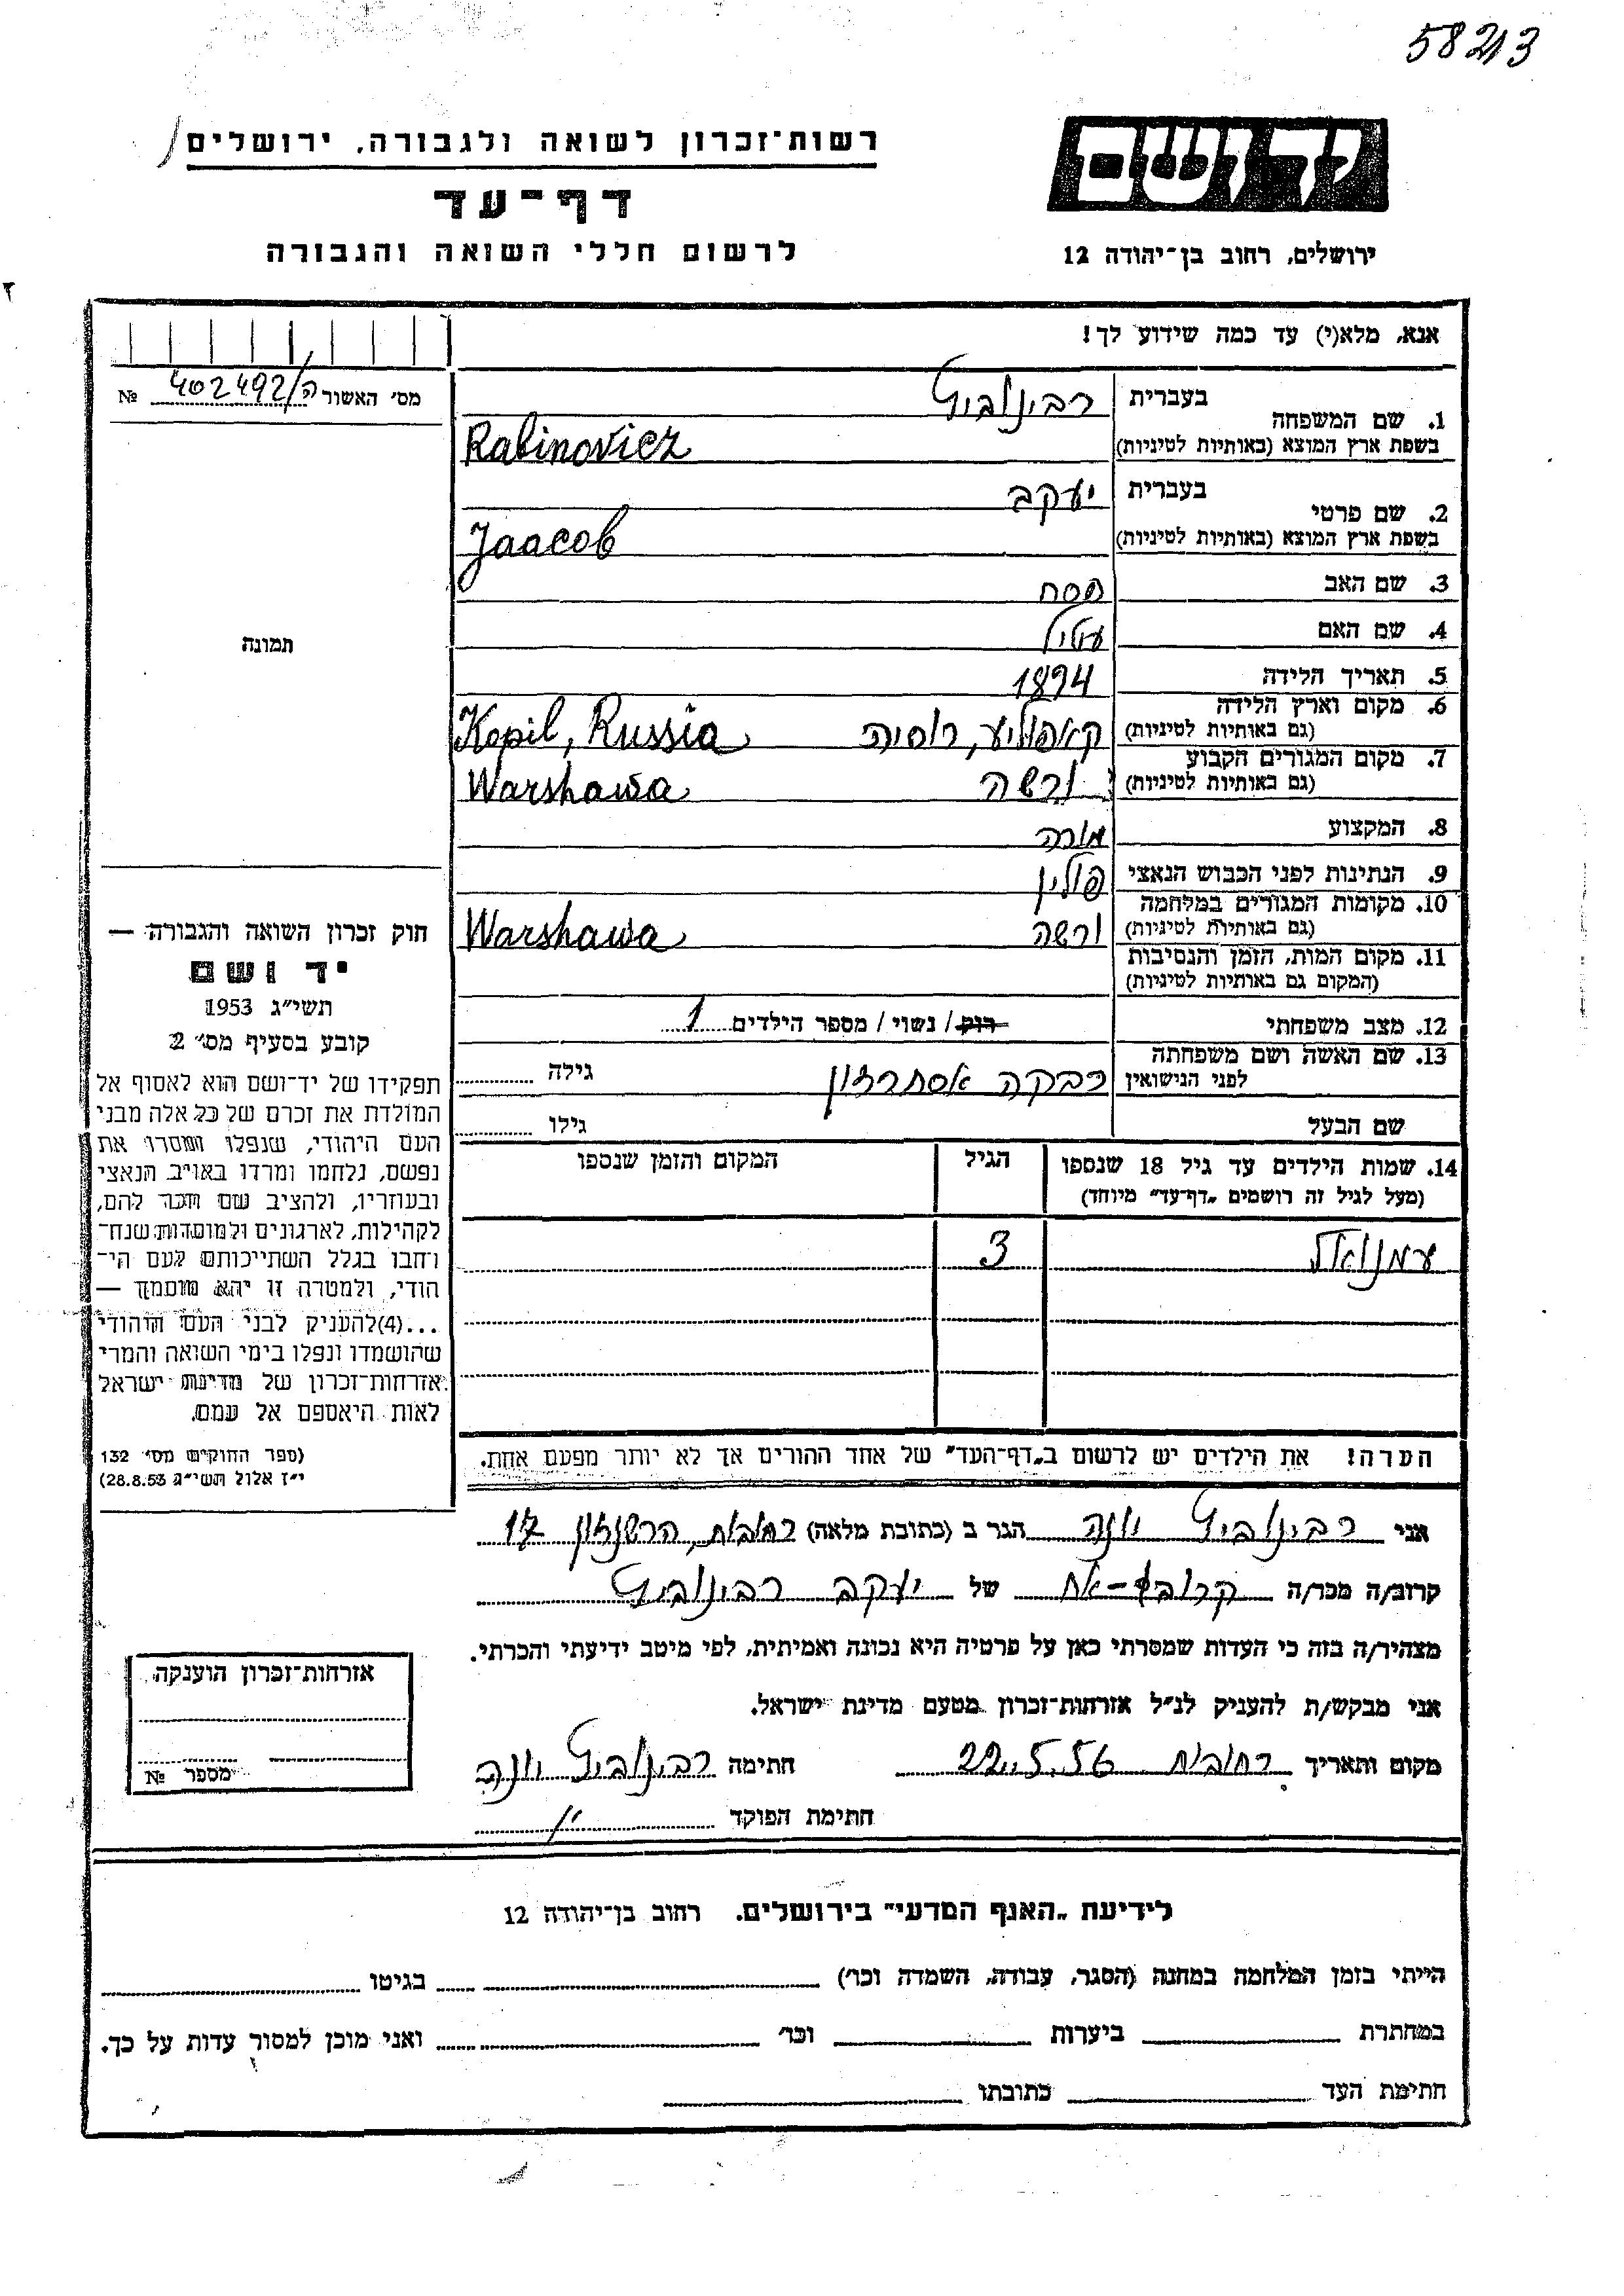 58213
רשות-זכרון לשואה ולגבורה, ירושלים
דף-עד
לרשום חללי השואה והגבורה
יד ושם
ירושלים, רחוב בן-יהודה 12
אנא, מלא(י) עד כמה שידוע לך!
מס׳ האשור ה/402492 №
1. שם המשפחה בעברית רבינוביץ
בשפת ארץ המוצא (באותיות לטיניות) Rabinovicz
2. שם פרטי בעברית יעקב
בשפת ארץ המוצא (באותיות לטיניות) Jaacob
3. שם האב פסח
4. שם האם
5. תאריך הלידה 1894
6. מקום וארץ הלידה
(גם באותיות לטיניות) קאפוליע, רוסיה Kopil, Russia
7. מקום המגורים הקבוע
(גם באותיות לטיניות) ורשה Warshawa
8. המקצוע מורה
9. הנתינות לפני הכבוש הנאצי פולין
10. מקומות המגורים במלחמה
(גם באותיות לטיניות) ורשה Warshawa
11. מקום המות, הזמן והנסיבות
(המקום גם באותיות לטיניות)
12. מצב משפחתי רוק / נשוי / מספר הילדים 1
13. שם האשה ושם משפחתה
לפני הנישואין רבקה אסתרזון גילה
שם הבעל גילו
14. שמות הילדים עד גיל 18 שנספו הגיל המקום והזמן שנספו
(מעל לגיל זה רושמים „דף-עד״ מיוחד)
עמנואל 3
הערה! את הילדים יש לרשום ב„דף-העד״ של אחד ההורים אך לא יותר מפעם אחת.
תמונה
חוק זכרון השואה והגבורה —
יד ושם
תשי״ג 1953
קובע בסעיף מס׳ 2
תפקידו של יד-ושם הוא לאסוף אל
המולדת את זכרם של כל אלה מבני
העם היהודי, שנפלו ומסרו את
נפשם, נלחמו ומרדו באויב הנאצי
ובעוזריו, ולהציב שם וזכר להם,
לקהילות, לארגונים ולמוסדות שנח-
רבו בגלל השתייכותם לעם הי-
הודי, ולמטרה זו יהא מוסמך —
...(4)להעניק לבני העם היהודי
שהושמדו ונפלו בימי השואה והמרי
אזרחות-זכרון של מדינת ישראל
לאות היאספם אל עמם.
(ספר החוקים מס׳ 132
י״ז אלול תשי״ג 28.8.53)
אני רבינוביץ יונה הגר ב (כתובת מלאה) רחובות, הרשנזון 17
קרוב/ה מכר/ה קרוב-אח של יעקב רבינוביץ
מצהיר/ה בזה כי העדות שמסרתי כאן על פרטיה היא נכונה ואמיתית, לפי מיטב ידיעתי והכרתי.
אני מבקש/ת להעניק לנ״ל אזרחות-זכרון מטעם מדינת ישראל.
מקום ותאריך רחובות 22.5.56 חתימה רבינוביץ יונה
חתימת הפוקד
אזרחות-זכרון הוענקה
מספר №
לידיעת „האגף המדעי״ בירושלים. רחוב בן-יהודה 12
הייתי בזמן המלחמה במחנה (הסגר, עבודה, השמדה וכר׳) בגיטו
במחתרת ביערות וכר׳ ואני מוכן למסור עדות על כך.
חתימת העד כתובתו